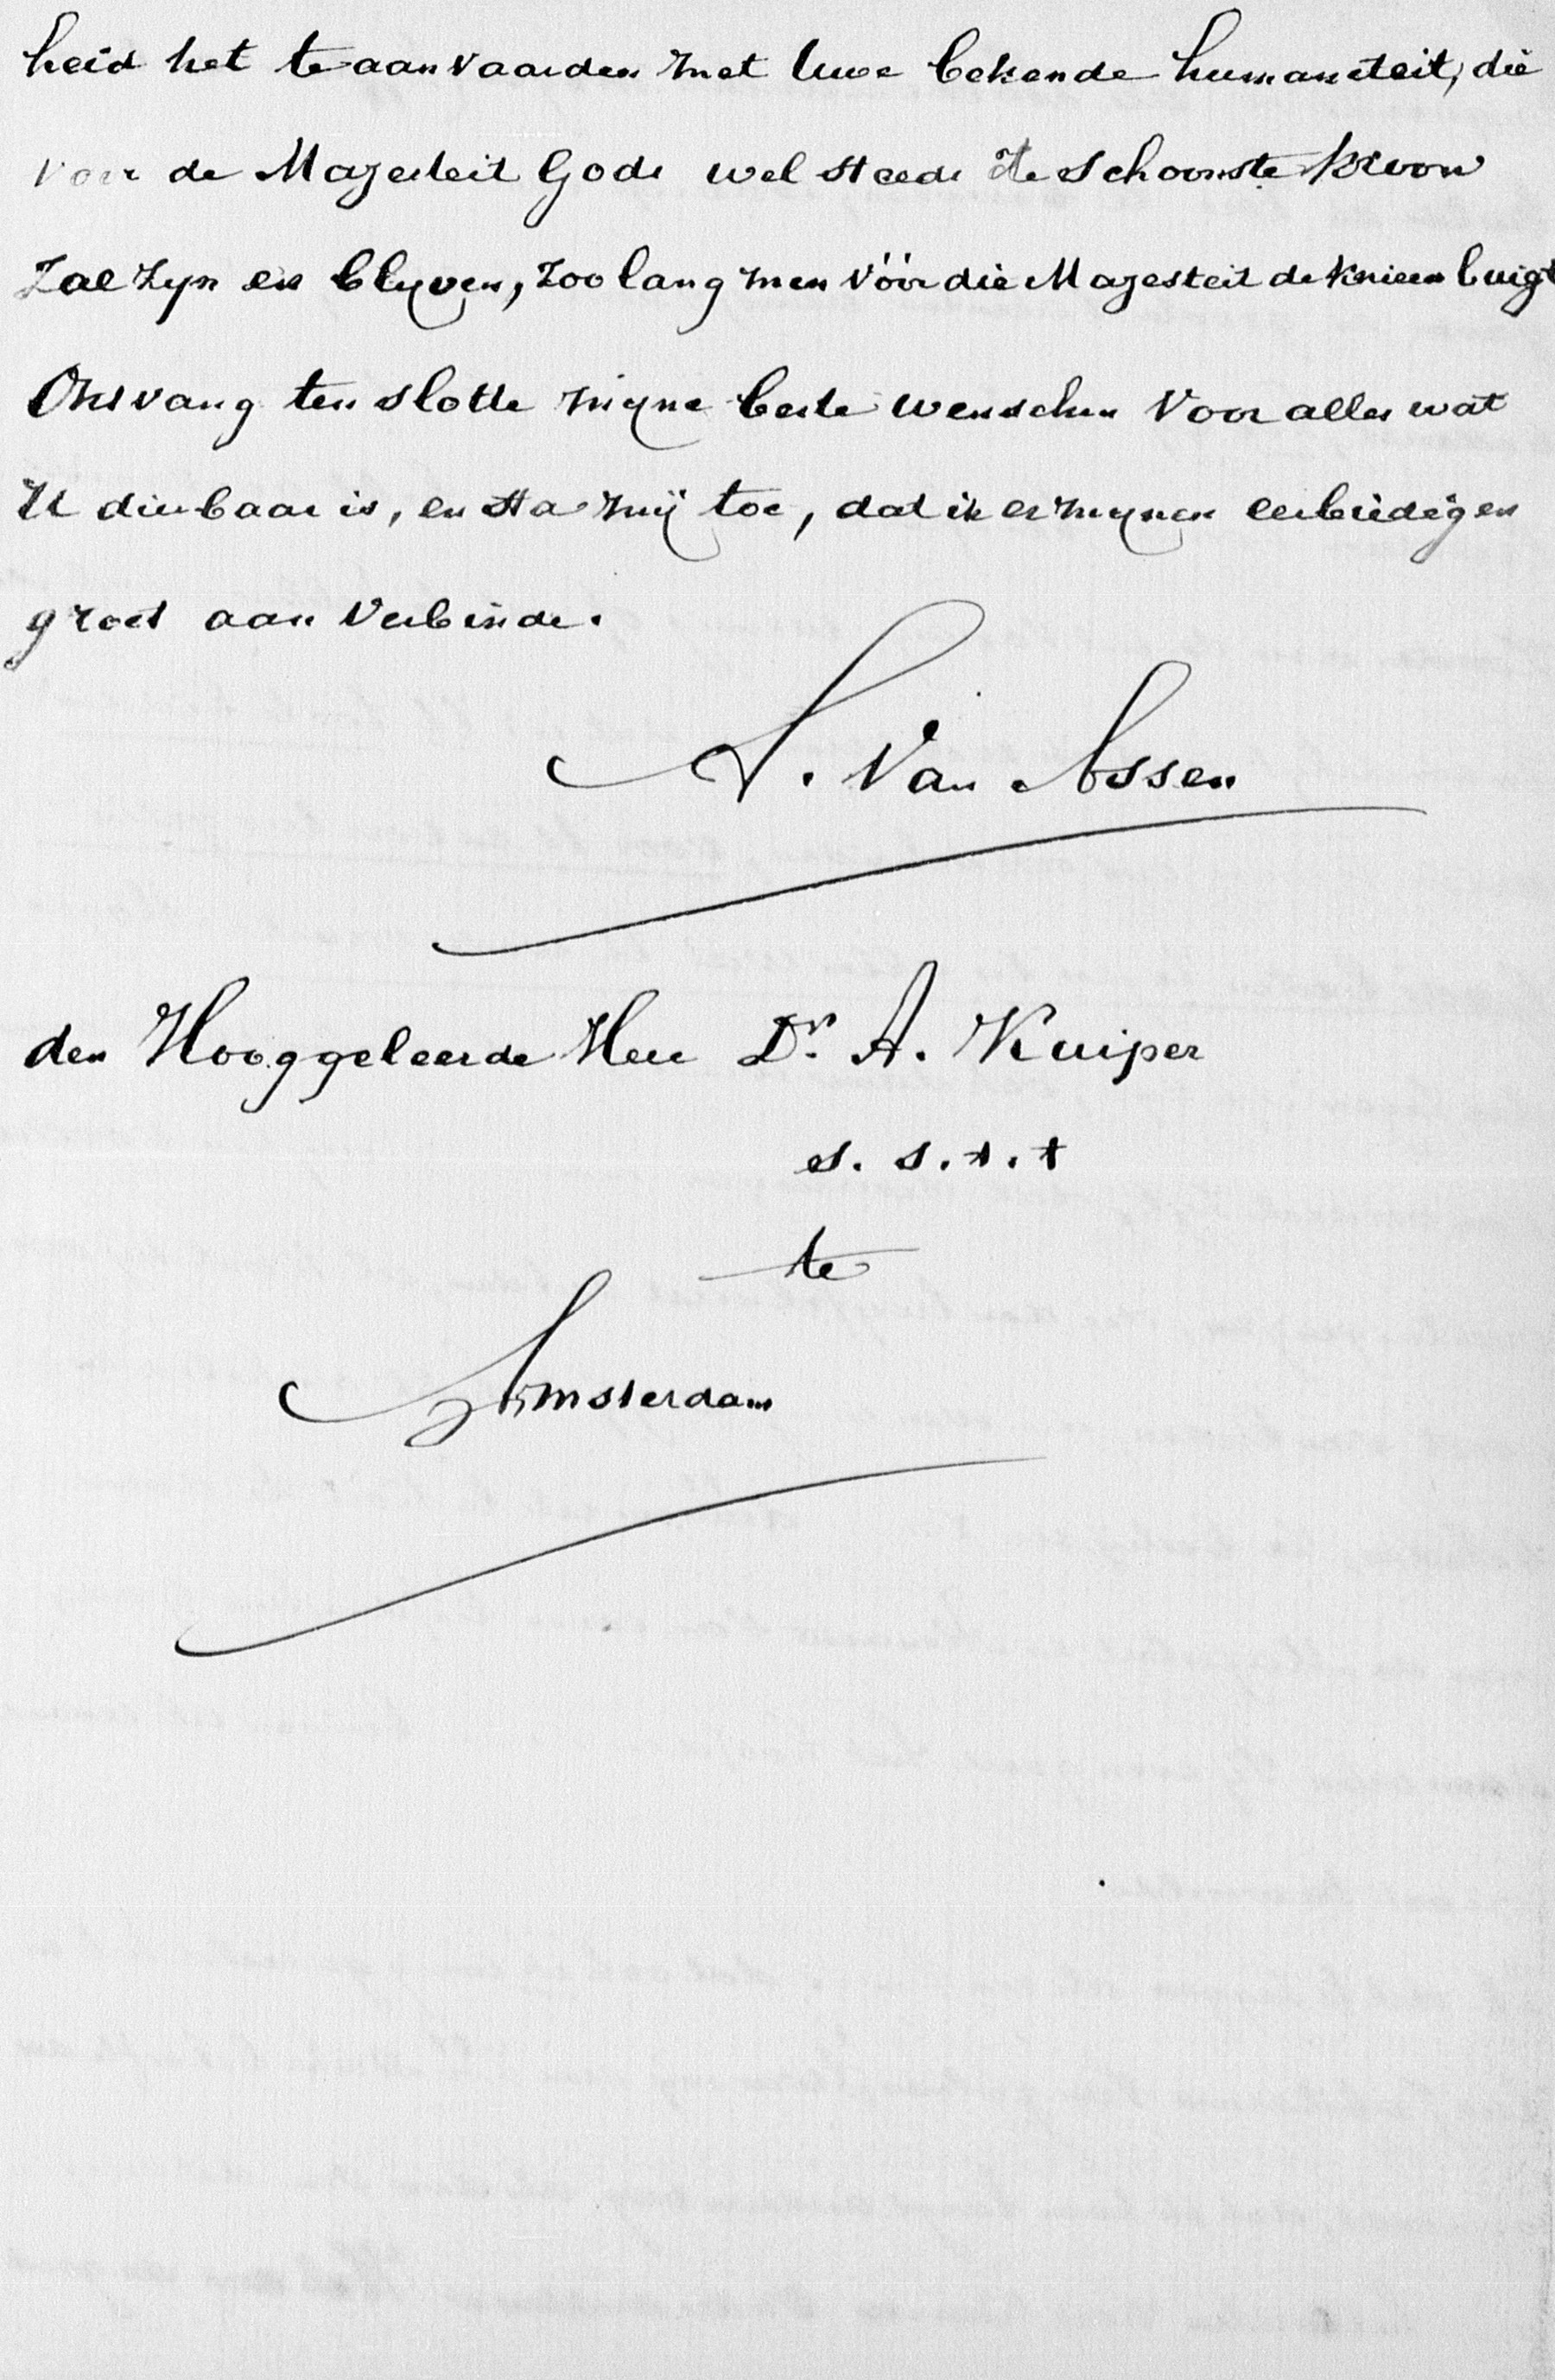 heid het te aanvaarden met Uwe bekende humaniteit, die
voor de Majesteit Gods wel steeds de schoonste kroon
zal zyn en blyven, zoo lang men vóór die Majesteit de knieen buigt
Ontvang ten slotte myne beste wenschen voor alles wat
U dierbaar is, en sta mij toe, dat ik er mynen eerbiedigen
groet aan verbinde.
Van Assen
den Hooggeleerde Heer Dr. A. Kuiper
s. s. t. t
te
Amsterdam